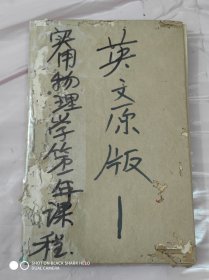 实用物理学第一年课程
英文原版
1
SHOT ON BLACK SHARK HELO
DUAL CAMERA